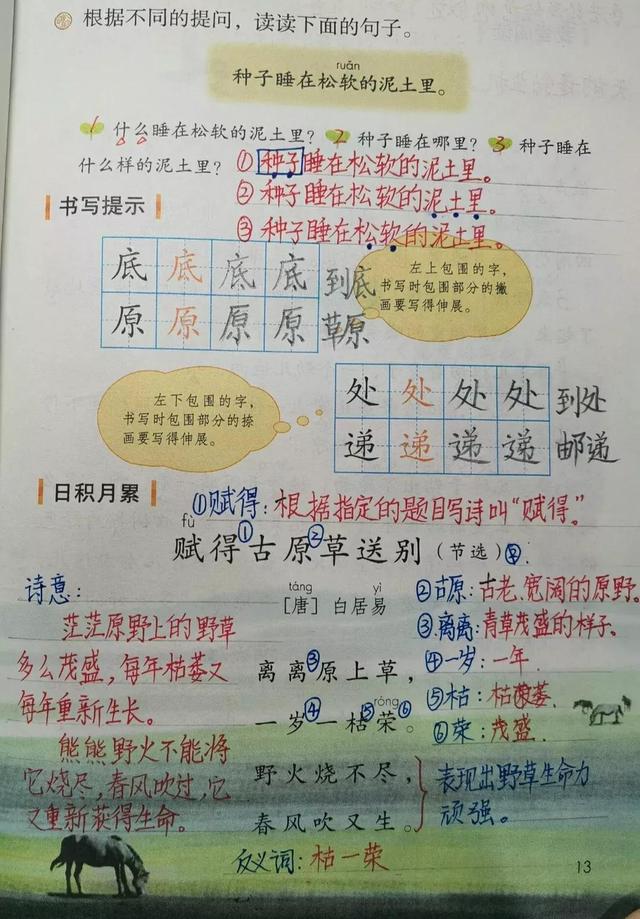 根据不同的提问，读读下面的句子。
ruǎn
种子睡在松软的泥土里。
1 什么睡在松软的泥土里？ 2 种子睡在哪里？ 3 种子睡在
什么样的泥土里？ ①种子睡在松软的泥土里。
②种子睡在松软的泥土里。
书写提示
③种子睡在松软的泥土里。
底 底 底 底 到底
原 原 原 原 草原
左上包围的字，
书写时包围部分的撇
画要写得伸展。
左下包围的字，
书写时包围部分的捺
画要写得伸展。
处 处 处 处 到处
递 递 递 递 邮递
日积月累
①赋得：根据指定的题目写诗叫“赋得。”
fù
赋得①古原②草送别（节选）
táng yì
［唐］白居易
离离③原上草，
róng
一岁④一枯⑤荣⑥。
野火烧不尽，
春风吹又生。
诗意：
茫茫原野上的野草
多么茂盛，每年枯萎又
每年重新生长。
熊熊野火不能将
它烧尽，春风吹过，它
又重新获得生命。
②古原：古老、宽阔的原野。
③离离：青草茂盛的样子。
④一岁：一年.
⑤枯：枯萎.
⑥荣：茂盛.
表现出野草生命力
顽强。
反义词：枯一荣
13